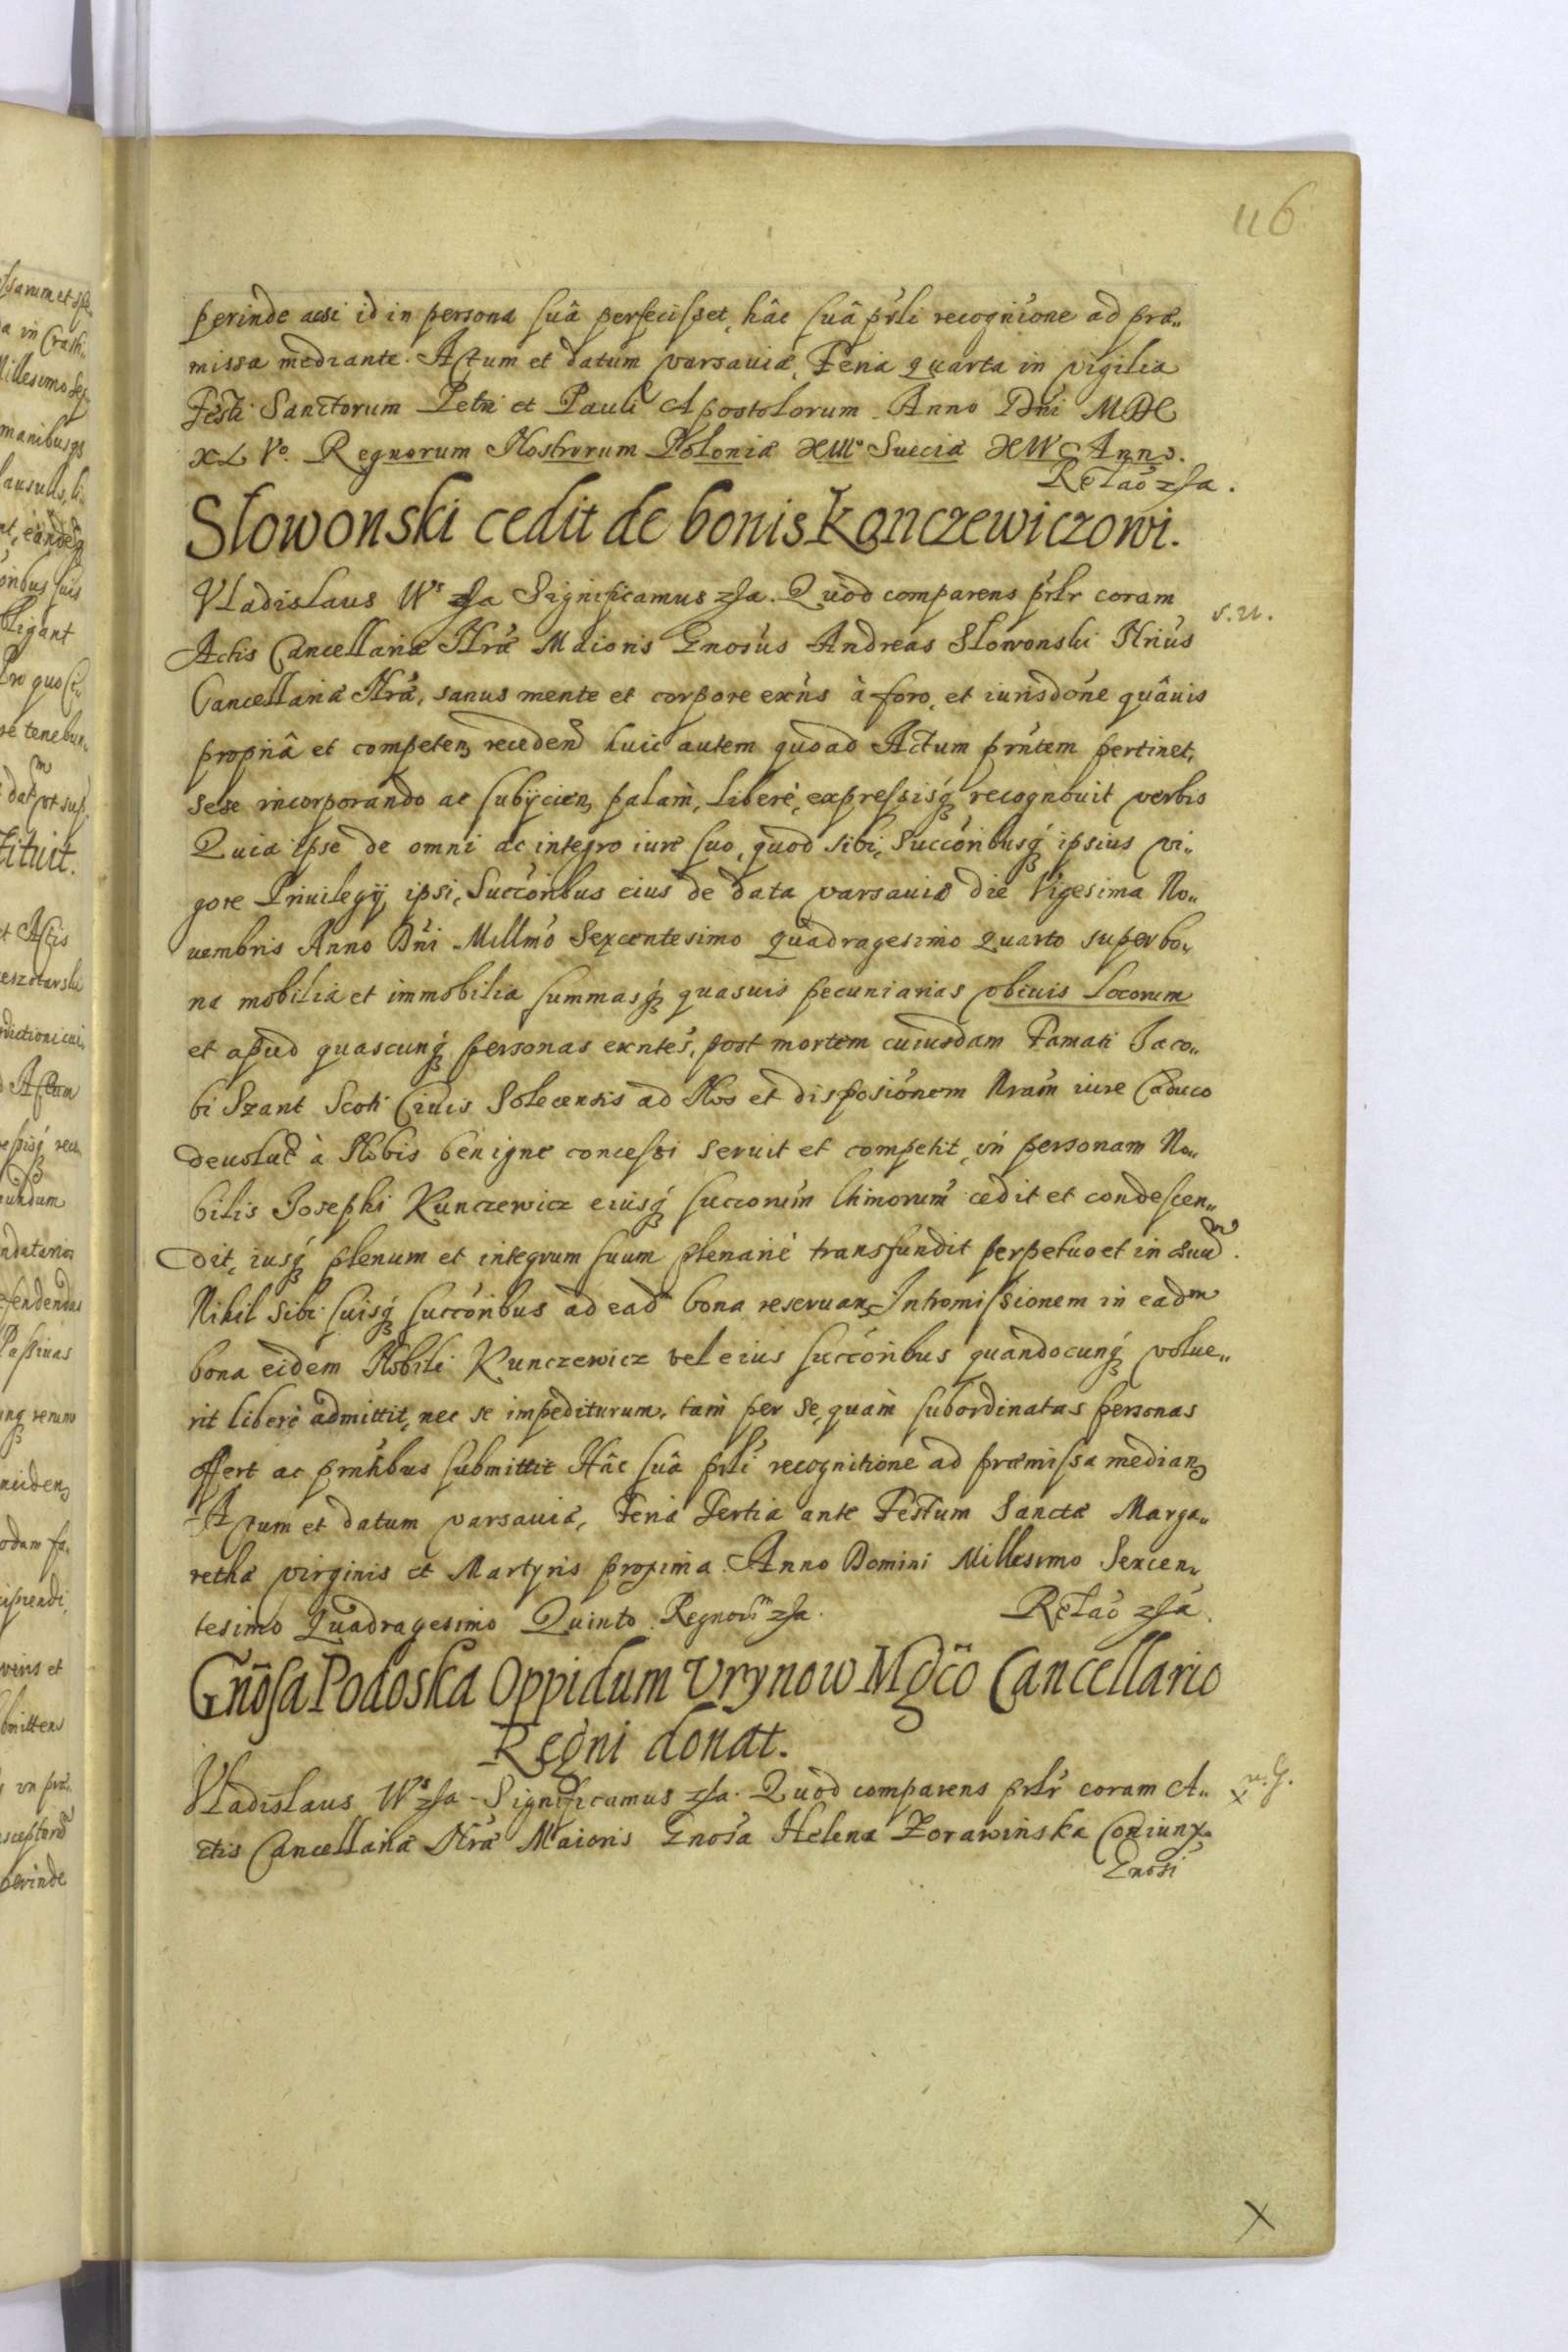 116
perinde acsi id in persona suâ perfecisset, hâc suâ pñli recogniõne ad præ„
missa mediante. Actum et datum varsaviæ, Feria quarta in vigilia
Festi Sanctorum Petri et Pauli Apostolorum. Anno Dñi MDC
XLVº. Regnorum Nostrorum Poloniæ XIIIº Sueciæ XIVº Anno.
Relaõ zsa.
Słowonski cedit de bonis Konczewiczowi.
Vladislaus IVs zsa Significamus zsa. Quòd comparens pñlr coram
Actis Cancellariæ Nr̃æ Maioris Gnosus Andreas Slowonski Nrius
Cancellariæ Nr̃æ, sanus mente et corpore exñs à foro, et iurisdõne quâuis
propriâ et competen, recedend huic autem quoad Actum pñtem pertinet,
sese incorporando ac subijcien, palàm, liberè, expressisq recognouit verbis
Quia ipse de omni ac integro iure suo, quod sibi, succoribusq ipsius vi„
gore Priuilegij ipsi, Succoribus eius de data varsauiæ die Vigesima No„
uembris Anno Dñi Millmo Sexcentesimo quadragesimo quarto super bo„
na mobilia et immobilia summasq quasuis pecuniarias vbiuis locorum
et apud quascunq personas exntes, post mortem cuiusdam Famati Iaco„
bi Szant Scoti Ciuis Solecensis ad Nos et disposiõnem Nram iure Caduco
deuolut à Nobis benigne concessi seruit et competit, in personam No„
bilis Josephi Kunczewicz eiusq succorum lñimorum cedit et condescen„
dit, iusq plenum et integrum suum plenariè transfundit perpetuo et in æuum.
Nihil sibi suisq succoribus ad eadm bona reseruan, Intromissionem in eadm
bona eidem Nobili Kunczewicz vel eius succoribus quandocunq volue„
rit liberè admittit, nec se impediturum, tàm per se, quàm subordinatas personas
offert ac pñtibus submittit Hâc suâ pñli recognitione ad præmissa median,
Actum et datum varsauiæ, Feria Tertia ante Festum Sanctæ Marga„
rethæ virginis et Martyris proxima. Anno Domini Millesimo Sexcen„
tesimo Quadragesimo Quinto. Regnorm zsa.
Relaõ zsa.
Gñosa Podoska Oppidum Vrynow Mgcõ Cancellario
Regni donat.
Vladislaus IVs zsa. Significamus zsa. Quòd comparens pñlr coram A„
ctis Cancellariæ Nr̃æ Maioris Gnosa Helena Zorawinska Coniunx
Gnosi